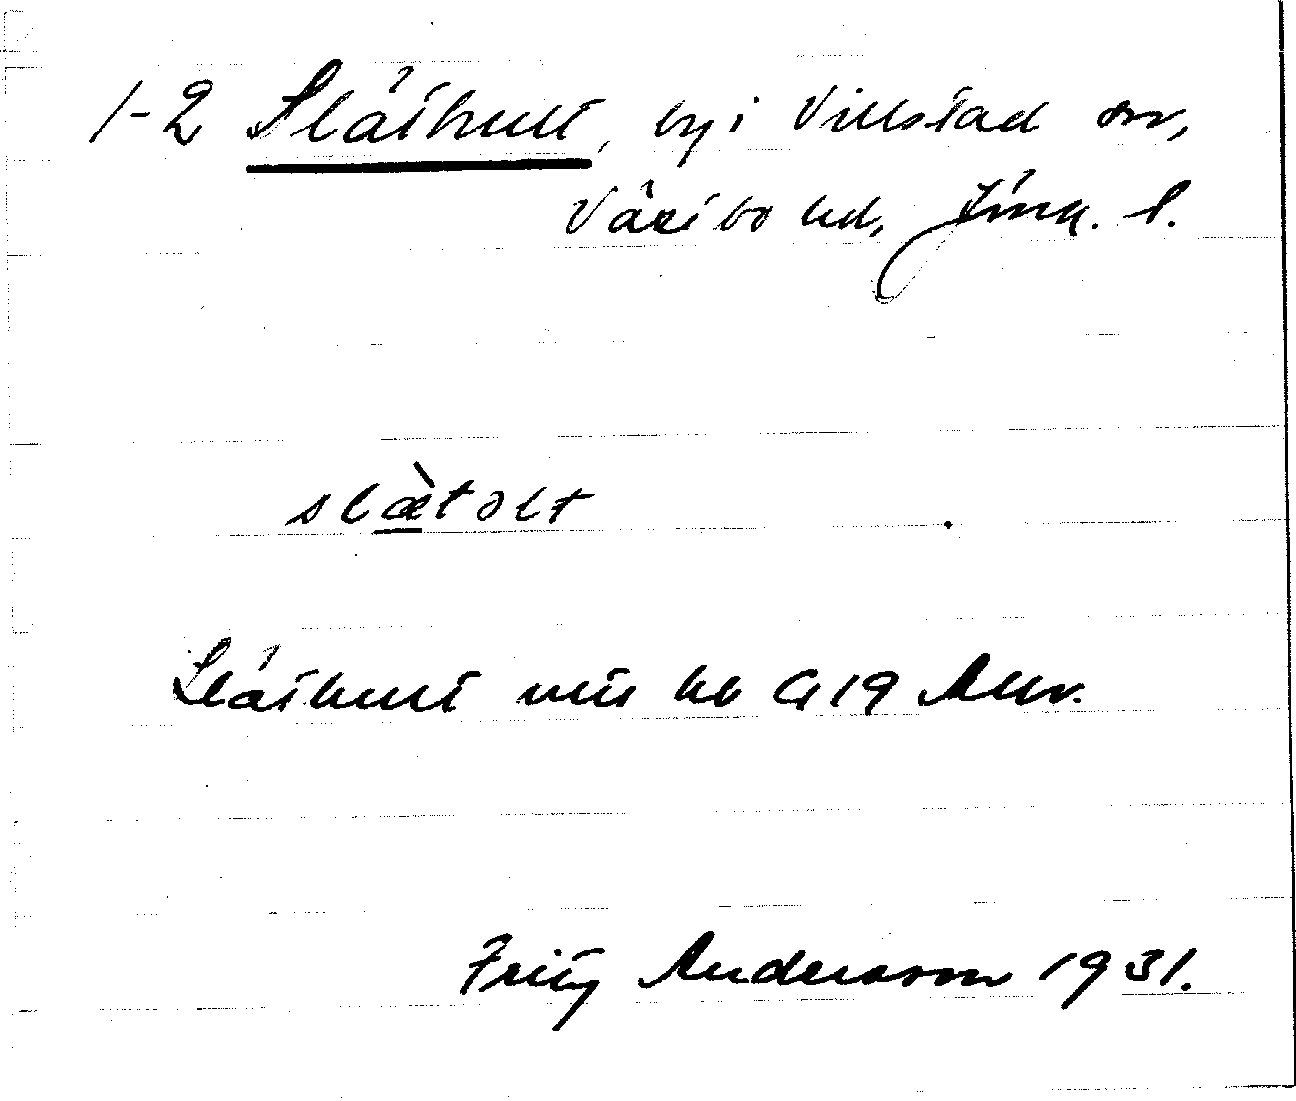 1-2 Slåthult, by i Villstad sn,
Västbo hd, Jönk. l.
slæ̀tolt
Slåthult mtl kb G 19 Allbr.
Fritz Andersson 1931.